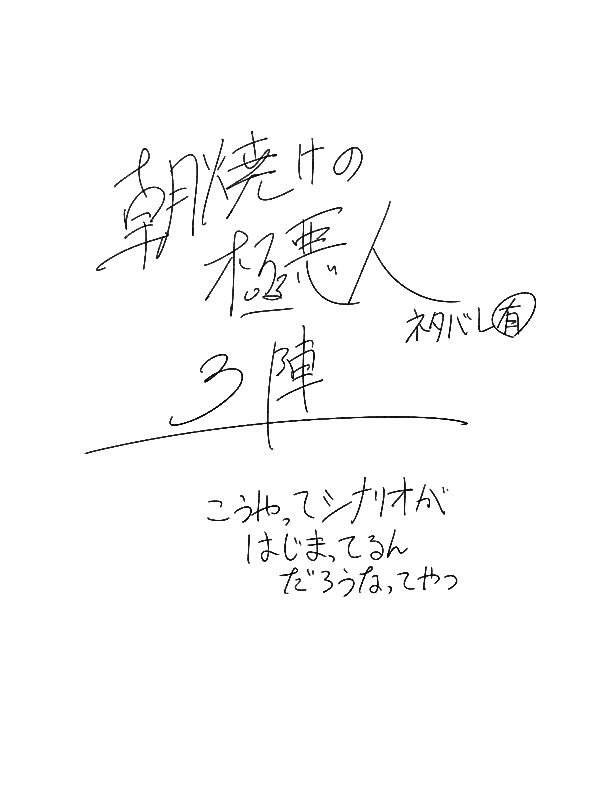 朝焼けの
極悪人
ネタバレ有
3陣
こうやってシナリオが
はじまってるん
だろうなってやつ